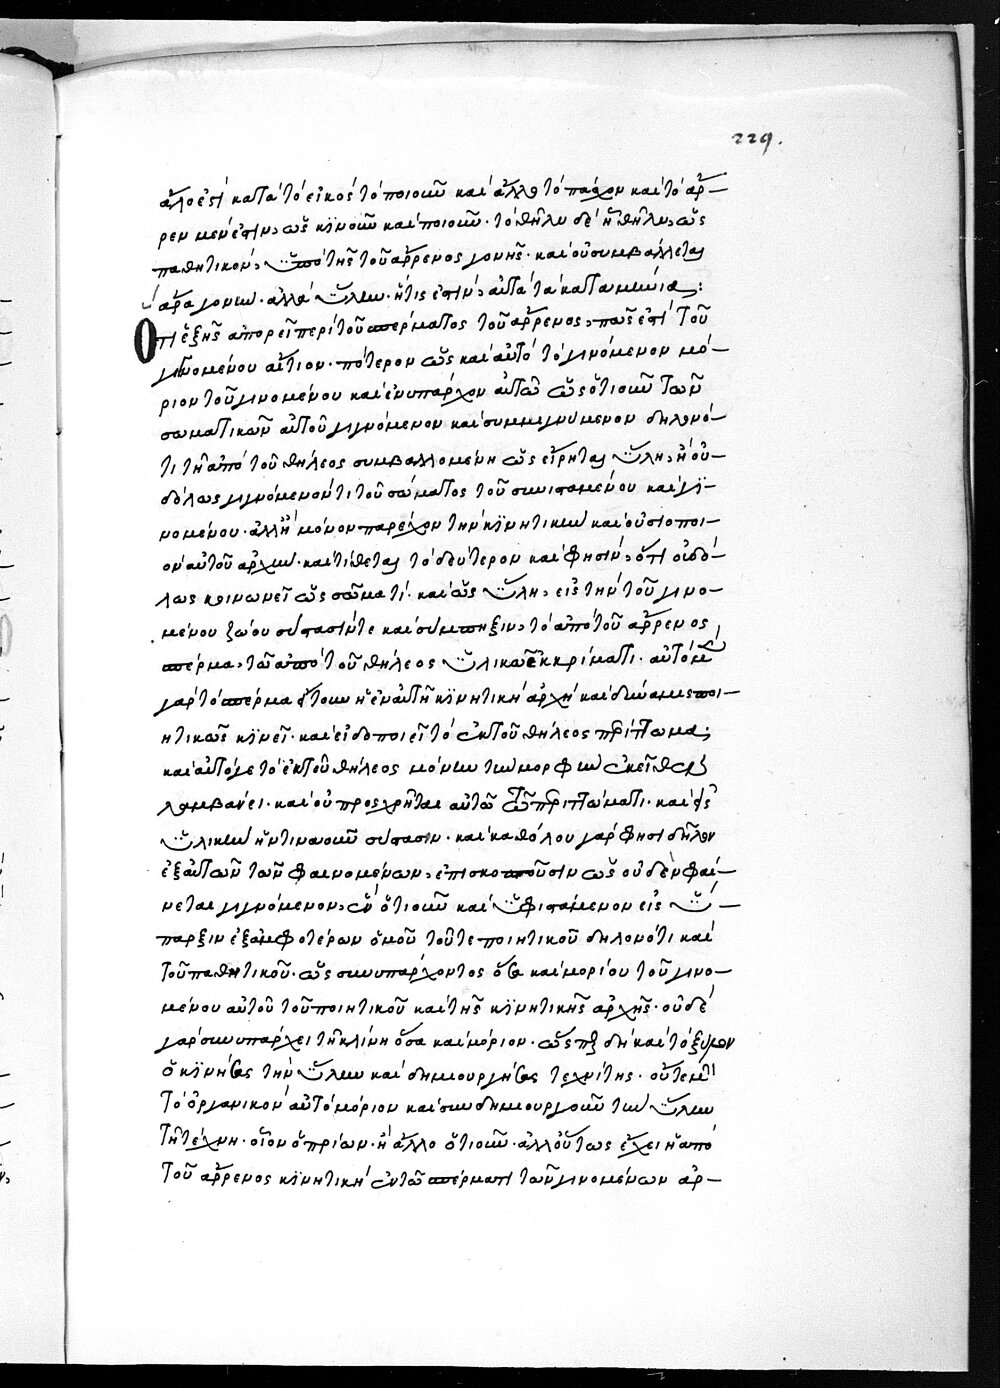 229.
ἄλλο ἐστὶ κατὰ τὸ εἰκός τὸ ποιοῦν καὶ ἄλλο τὸ πάσχον καὶ τὸ ἄρ-
ρεν μέν ἐστιν, ὡς κινοῦν καὶ ποιοῦν· τὸ θῆλυ δὲ ᾗ θῆλυ, ὡς
παθητικόν, ὑπὸ τῆς τοῦ ἄρρενος γονῆς· καὶ οὐ συμβάλλεται
ἄρα γονὴν· ἀλλὰ ὕλην· ἥτις ἐστὶν, αὐτὰ τὰ καταμήνια:
Ὅτι ἑξῆς ἀπορεῖ περὶ τοῦ σπέρματος τοῦ ἄρρενος, πῶς ἐστὶ τοῦ
γινομένου αἴτιον· πότερον ὡς καὶ αὐτὸ τὸ γινόμενον μό-
ριον τοῦ γινομένου καὶ ἐνυπάρχον αὐτῶ ὡς ὁτιοῦν τῶν
σωματικῶν αὐτοῦ γινόμενον καὶ συμμιγνύμενον δηλονό-
τι τῆ ἀπὸ τοῦ θήλεος συμβαλλομένη ὡς εἴρηται ὕλη, ἢ οὐ-
δόλως γινόμενόν τι τοῦ σώματος τοῦ συνισταμένου καὶ γι-
νομένου· ἀλλ' ἢ μόνον παρέχον τὴν κινητικὴν καὶ οὐσιοποι-
ὸν αὐτοῦ ἀρχήν· καὶ τίθεται τὸ δεύτερον καὶ φησὶν, ὅτι οὐδό-
λως κοινωνεῖ ὡς σῶμά τι· καὶ ὡς ὕλη, εἰς τὴν τοῦ γινο-
μένου ζώου σύστασίν τε καὶ σύμπηξιν, τὸ ἀπὸ τοῦ ἄρρενος
σπέρμα, τῶ ἀπὸ τοῦ θήλεος ὑλικῶ ἐκκρίματι· αὐτὸ μὲν
γὰρ τὸ σπέρμα ἤτουν ἡ ἐν αὐτῆ κινητικὴ ἀρχὴ καὶ δύναμις ποι-
ητικῶς κινεῖ· καὶ εἰδοποιεῖ τὸ ἐκ τοῦ θήλεος περίττωμα;
καὶ αὐτό γε τὸ ἐκ τοῦ θήλεος μόνην τὴν μορφὴν ἐκεῖθεν
λαμβάνει· καὶ οὐ προσχρῆται αὐτῶ τῶ περιττώματι· καὶ
ὑλικὴν ἡντιναοῦν σύστασιν· καὶ καθόλου γάρ φησι δῆλον
ἐξ αὐτῶν τῶν φαινομένων, ἐπισκοποῦσιν ὡς οὐδὲν φαί-
νεται γινόμενον, ἓν ὁτιοῦν καὶ ὑφιστάμενον εἰς ὕ-
παρξιν ἐξ ἀμφοτέρων ὁμοῦ τοῦ τε ποιητικοῦ δηλονότι καὶ
τοῦ παθητικοῦ· ὡς συνυπάρχοντος ὅσα καὶ μορίου τοῦ γινο-
μένου αὐτοῦ τοῦ ποιητικοῦ καὶ τῆς κινητικῆς ἀρχῆς· οὐδὲ
γὰρ συνυπάρχει τῆ κλίνη ὅσα καὶ μόριον· ὥσπερ δὴ καὶ τὸ ξύλον
ὁ κινήσας τὴν ὕλην καὶ δημιουργήσας τεχνίτης· οὔτε μὴν
τὸ ὀργανικὸν αὐτὸ μόριον καὶ συνδημιουργοῦν τὴν ὕλην
τῆ τέχνη· οἷον ὁ πρίων· ἢ ἄλλο ὁτιοῦν· ἀλλ' οὕτως ἔχει ἡ ἀπὸ
τοῦ ἄρρενος κινητικὴ ἐν τῶ σπέρματι τῶν γινομένων ἀρ-